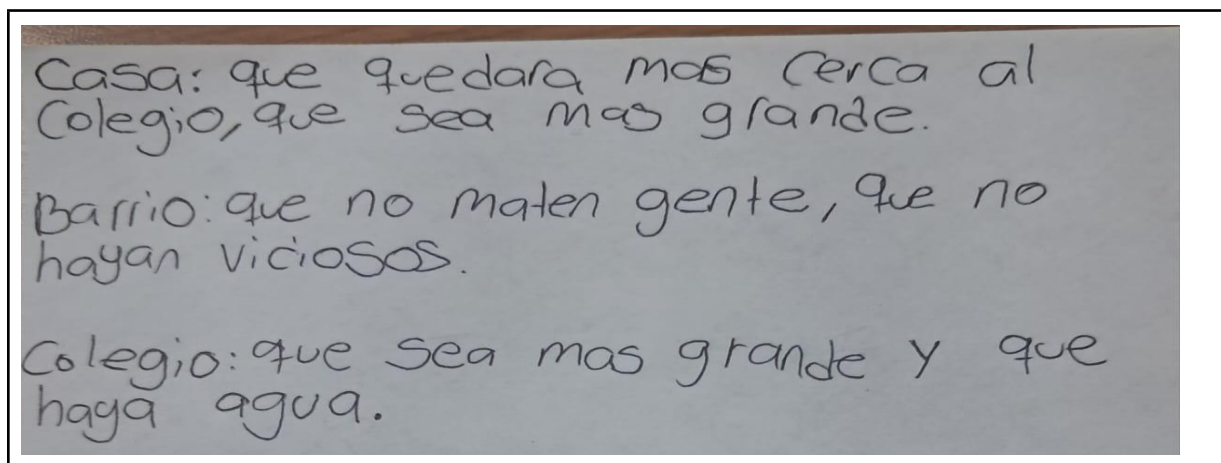 Casa: que quedara mas cerca al
Colegio, que sea mas grande.
Barrio: que no maten gente, que no
hayan viciosos.
Colegio: que sea mas grande y que
haya agua.